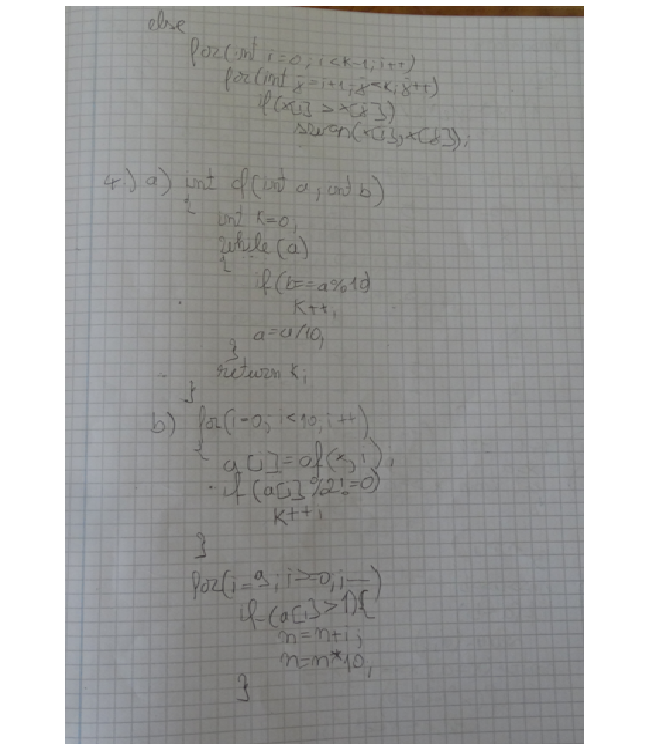 else
for(int i=0; i<k-1; i++)
for(int j=i+1; j<k; j++)
if(x[i] > x[j])
swap(x[i], x[j]);
4.) a) int cf(int a, int b)
{
int k=0;
while(a)
{
if(b==a%10)
k++;
a=a/10;
}
return k;
}
b) for(i=0; i<10; i++)
{
a[i]=cf(x,i);
if(a[i]%2!=0)
k++;
}
for(i=9; i>=0; i--)
if(a[i]>1){
n=n+i;
n=n*10;
}